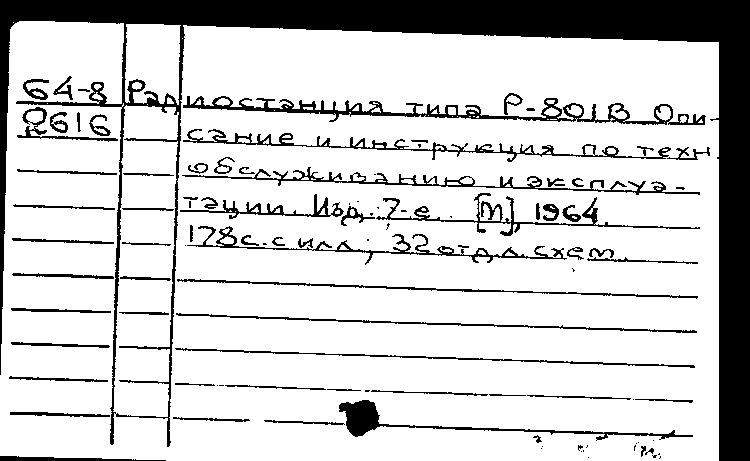 64-8 Радиостанция типа Р-801В Опи-
616 сание и инструкция по техн.
обслуживанию и эксплуа-
тации. Изд. 7-е. [М], 1964.
178с. с илл.; 32 отд.л. схем.